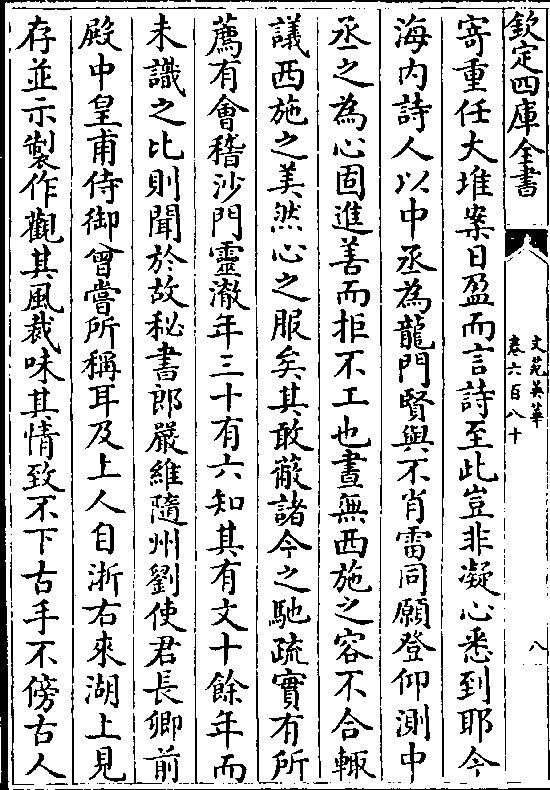 欽定四庫全書
文苑英華
卷六百八十
八
寄重任大堆案日盈而言詩至此豈非凝心悉到耶今
海内詩人以中丞為龍門賢與不肖雷同願登仰測中
丞之為心固進善而拒不工也晝無西施之容不合輙
議西施之美然心之服矣其敢蔽諸今之馳疏實有所
薦有會稽沙門靈澈年三十有六知其有文十餘年而
未識之比則聞於故秘書郎嚴維隨州劉使君長卿前
殿中皇甫侍御曾嘗所稱耳及上人自浙右來湖上見
存並示製作觀其風裁味其情致不下古手不傍古人